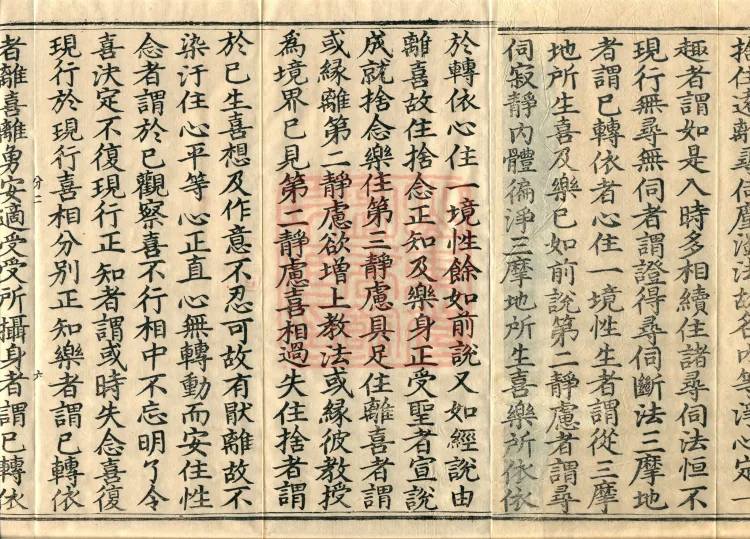 捨住遠離尋伺塵濁法故名内等淨心定一
趣者謂如是入時多相續住諸尋伺法恒不
現行無尋無伺者謂證得尋伺斷法三摩地
者謂已轉依者心住一境性生者謂從三摩
地所生喜及樂已如前說第二靜慮者謂尋
伺寂靜内體徧淨三摩地所生喜樂所依依
於轉依心住一境性餘如前說又如經說由
離喜故住捨念正知及樂身正受聖者宣說
成就捨念樂住第三靜慮具足住離喜者謂
或緣離第二靜慮欲增上教法或緣彼教授
爲境界已見第二靜慮喜相過失住捨者謂
於已生喜想及作意不忍可故有猒離故不
染汙住心平等心正直心無轉動而安住性
念者謂於已觀察喜不行相中不忘明了令
喜決定不復現行正知者謂或時失念喜復
現行於現行喜相分別正知樂者謂已轉依
分二 六
者離喜離勇安適受受所攝身者謂已轉依